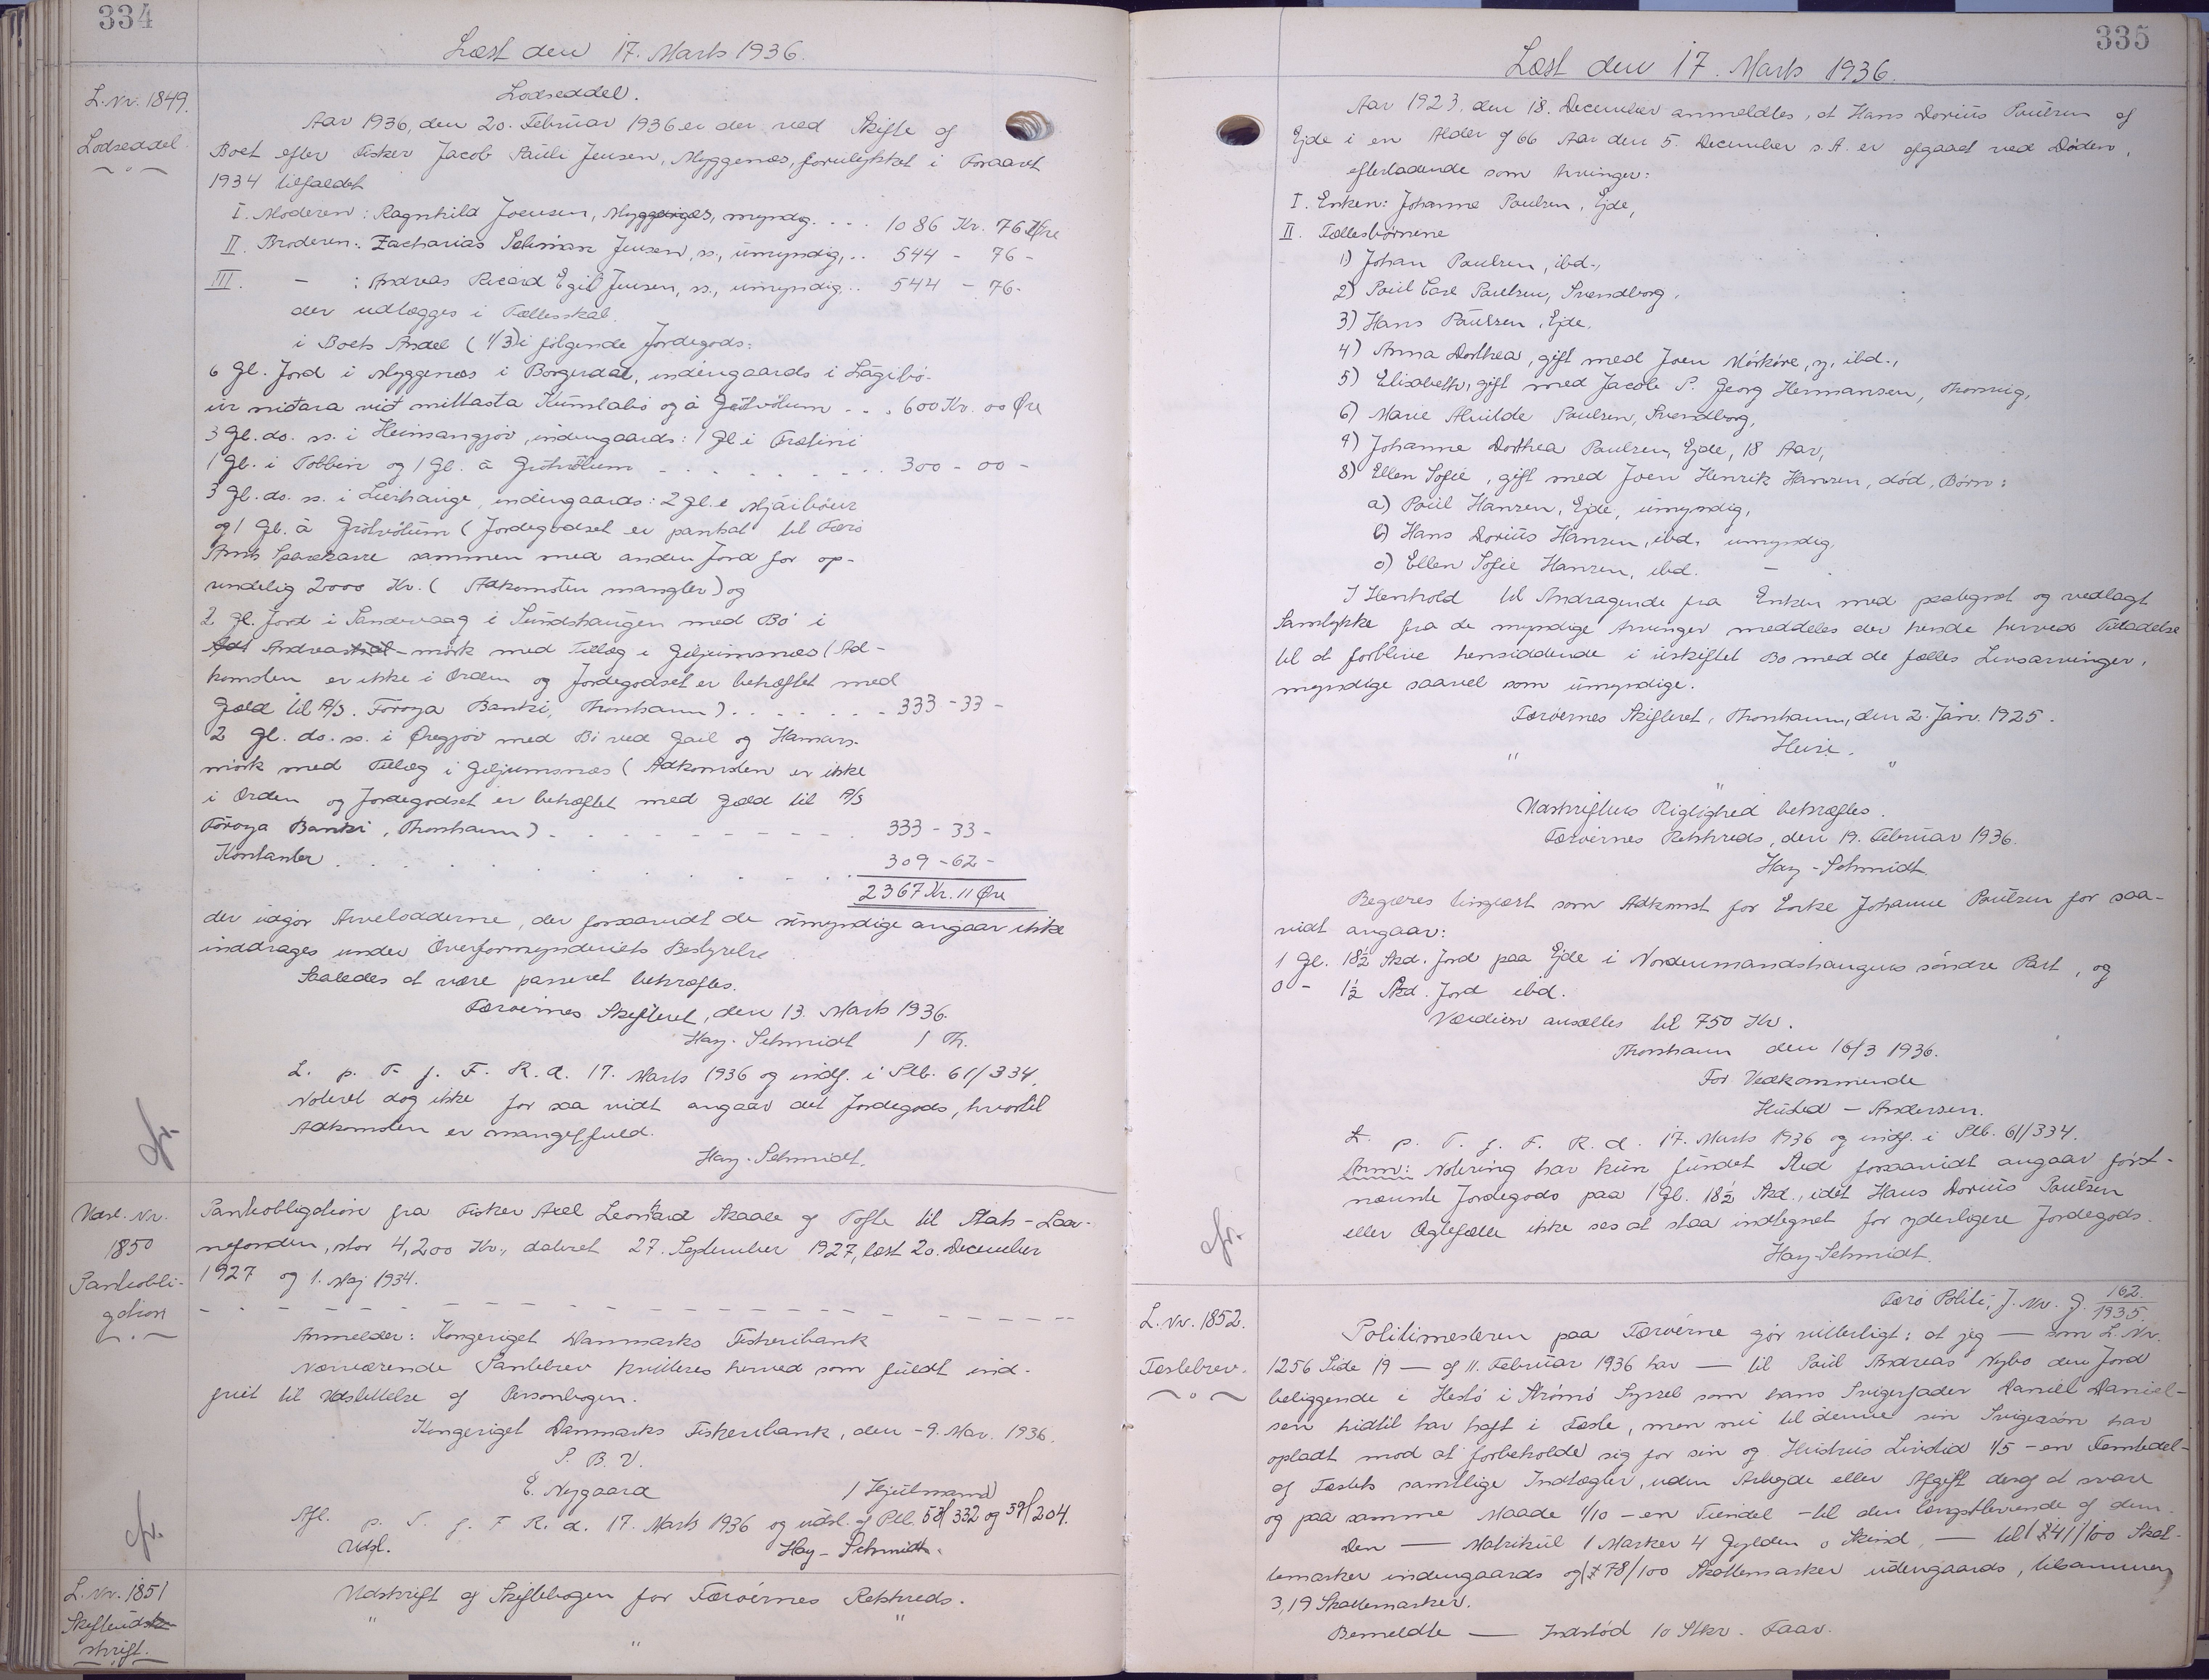 334
Læst den 17. Marts 1936.
L. Nr. 1849.
Lodseddel
Lodseddel.
Aar 1936, den 20. Februar 1936 er der ved Skifte af
Boet efter Fisker Jacob Pauli Jensen, Myggenæs, forulykket i Foraaret
1934 tilfaldet
I. Moderen: Ragnhild Joensen, Myggenæs, myndig . . . 1086 Kr. 76 Øre
II. Broderen: Zacharias Jensen, ss., umyndig, . . 544 - 76 -
III. - : Andreas Ricard Egil Jensen, ss., umyndig . . 544 - 76 -
der udlægges i Fællesskab
i Boets Andel (1/3) i følgende Jordegods:
6 Gl. Jord i Myggenæs i Borgardal, indengaards i Lágibø-
ur niðara við mittasta Kumlabø og á Grótvølum . . . 600 Kr. 00 Øre
3 Gl. do. ss. i Heimangjov, indengaards: 1 Gl. i
1 Gl. i Tobbin og 1 Gl. á Grótvølum - . . . . . . 300 - 00 -
3 Gl. do. ss. i Lierhauge, indengaards: 2 Gl. i
og 1 Gl. á Grótvølum (Jordegodset er pantsat til Færø
Amts Sparekasse sammen med anden Jord for op-
rindelig 2000 Kr. (Adkomsten mangler) og
2 Gl. Jord i Sandevaag i Sundshaugen med Bø i
Andreas-mørk med Tillæg i Giljumsnæs (Ad-
komsten er ikke i Orden og Jordegodset er behæftet med
Gæld til A/S. Föroya Banki, Thorshavn) . . . . . . . 333 - 33 -
2 Gl. do. ss. i Øregjov med Bø ved Gail og Hamars-
mørk med Tillæg i Giljumsnæs (Adkomsten er ikke
i Orden og Jordegodset er behæftet med Gæld til A/S
Föroya Banki, Thorshavn) . . . . . . . . . . 333 - 33 -
Kontanter . . . . . . . . . . 309 - 62 -
2367 Kr. 11 Øre
der udgør Arvelodderne, der forsaavidt de umyndige angaar ikke
inddrages under Overformynderiets Bestyrelse
Saaledes at være passeret bekræftes.
Færøernes Skifteret, den 13. Marts 1936.
Hay-Schmidt / Th.
L. p. T. f. F. R. d. 17. Marts 1936 og indf. i Ptb. 61/334.
Noteret dog ikke for saa vidt angaar det Jordegods, hvortil
Adkomsten er mangelfuld.
Hay-Schmidt.
Udsl. Nr.
1850
Pantobli-
gation
Pantobligation fra Fisker Axel Leonard Skaale af Tofte til Stats-Laa-
nefonden, stor 4,200 Kr., dateret 27. September 1927, læst 20. December
1927 og 1. Maj 1934.
Anmelder: Kongeriget Danmarks Fiskeribank
Nærværende Pantebrev kvitteres herved som fuldt ind-
friet til Udslettelse af Personbogen.
Kongeriget Danmarks Fiskeribank, den -9. Mar. 1936.
P. B. V.
E. Nygaard / Hjulmand
Afl. p. T. f. F. R. d. 17. Marts 1936 og udsl. af Ptb. 53/332 og 59/204.
Udsl. Hay-Schmidt.
L. Nr. 1851
Skifteudsk-
skrift.
Udskrift af Skiftebogen for Færøernes Retskreds.
" "
"
335
Læst den 17. Marts 1936.
Aar 1923. den 18. December anmeldtes, at Hans Dorius Poulsen af
Ejde i en Alder af 66 Aar den 5. December s. A. er afgaaet ved Døden,
efterladende som Arvinger:
I. Enken: Johanne Poulsen, Ejde,
II. Fællesbørnene
1) Johan Poulsen, ibd.,
2) Poul Carl Poulsen, Svendborg,
3) Hans Poulsen, Ejde,
4) Anna Dorthea, gift med Joen Mörköre, y, ibd.,
5) Elisabeth, gift med Jacob P. Georg Hermansen, Thorsvig,
6) Marie Alvilde Poulsen, Svendborg,
7) Johanne Dorthea Poulsen, Ejde, 18 Aar,
8) Ellen Sofie, gift med Joen Henrik Hansen, død, Børn:
a) Poul Hansen, Ejde, umyndig,
b) Hans Dorius Hansen, ibd. umyndig,
c) Ellen Sofie Hansen, ibd. -
I Henhold til Andragende fra Enken med paategnet og vedlagt
Samtykke fra de myndige Arvinger meddeles der hende herved Tilladelse
til at forblive hensiddende i uskiftet Bo med de fælles Livsarvinger,
myndige saavel som umyndige.
Færøernes Skifteret, Thorshavn, den 2. Jan. 1925.
" "
"
Udskriftens Rigtighed bekræftes.
Færøernes Retskreds, den 19. Februar 1936.
Hay-Schmidt
Begæres tinglæst som Adkomst for Enke Johanne Poulsen for saa-
vidt angaar:
1 Gl. 18½ Skd. Jord paa Ejde i Nordenmandshaugens søndre Part, og
0 - 1½ Skd. Jord ibd.
Værdien ansættes til 750 Kr.
Thorshavn den 16/3 1936.
For Vedkommende
Husted-Andersen.
L. p. T. f. F. R. d. 17. Marts 1936 og indf. i Ptb. 61/334.
Anm: Notering har kun fundet Sted forsaavidt angaar først-
nævnte Jordegods paa 1 Gl. 18½ Skd., idet Hans Dorius Poulsen
eller Ægtefælle ikke ses at staa indtegnet for yderligere Jordegods.
Hay-Schmidt.
L. Nr. 1852.
Fæstebrev.
Færø Politi, J. Nr. G. 162/1935.
Politimesteren paa Færøerne gør vitterligt: at jeg — som L. Nr.
1256 Side 19 — af 11. Februar 1936 har — til Poul Andreas Nybo den Jord
beliggende i Hestø i Strømø Syssel som hans Svigerfader Daniel Daniel-
sen hidtil har haft i Fæste, men nu til denne sin Svigersøn har
opladt mod at forbeholde sig for sin og Hustrus Livstid 1/5 - en Femtedel -
af Fæstets samtlige Indtægter, uden Arbejde eller Afgift deraf at svare
og paa samme Maade 1/10 - en Tiendel - til den længstlevende af dem.
Den — Matrikul 1 Marker 4 Gylden 0 Skind, — til 41/100 Skat-
temarker indengaards og 78/100 Skattemarker udengaards, tilsammen
3,19 Skattemarker.
Bemeldte — Indstød 10 Stkr. Faar.